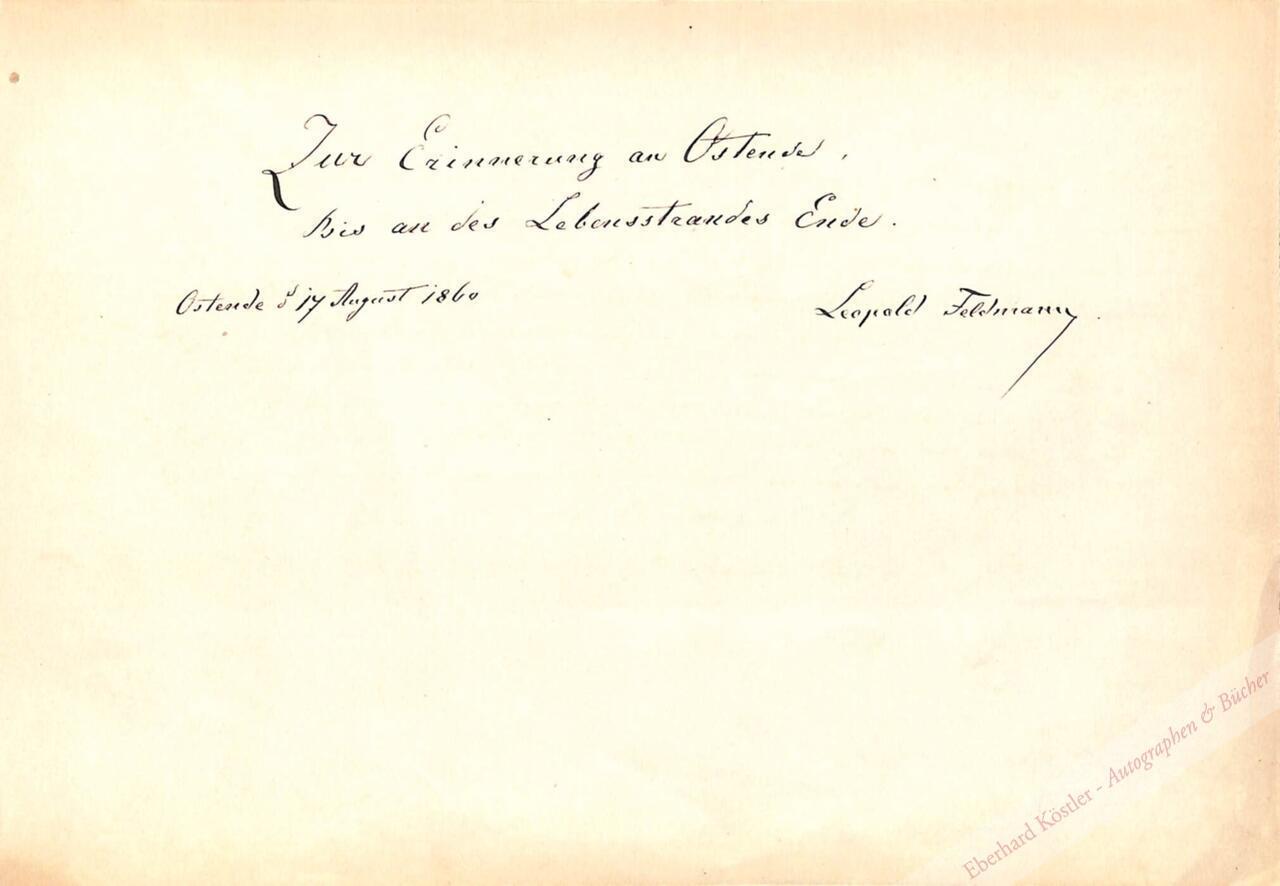 Zur Erinnerung an Ostende,
bis an des Lebensstrandes Ende.
Ostende d 17 August 1860
Leopold Feldmann.
Eberhard Köstler - Autographen & Bücher